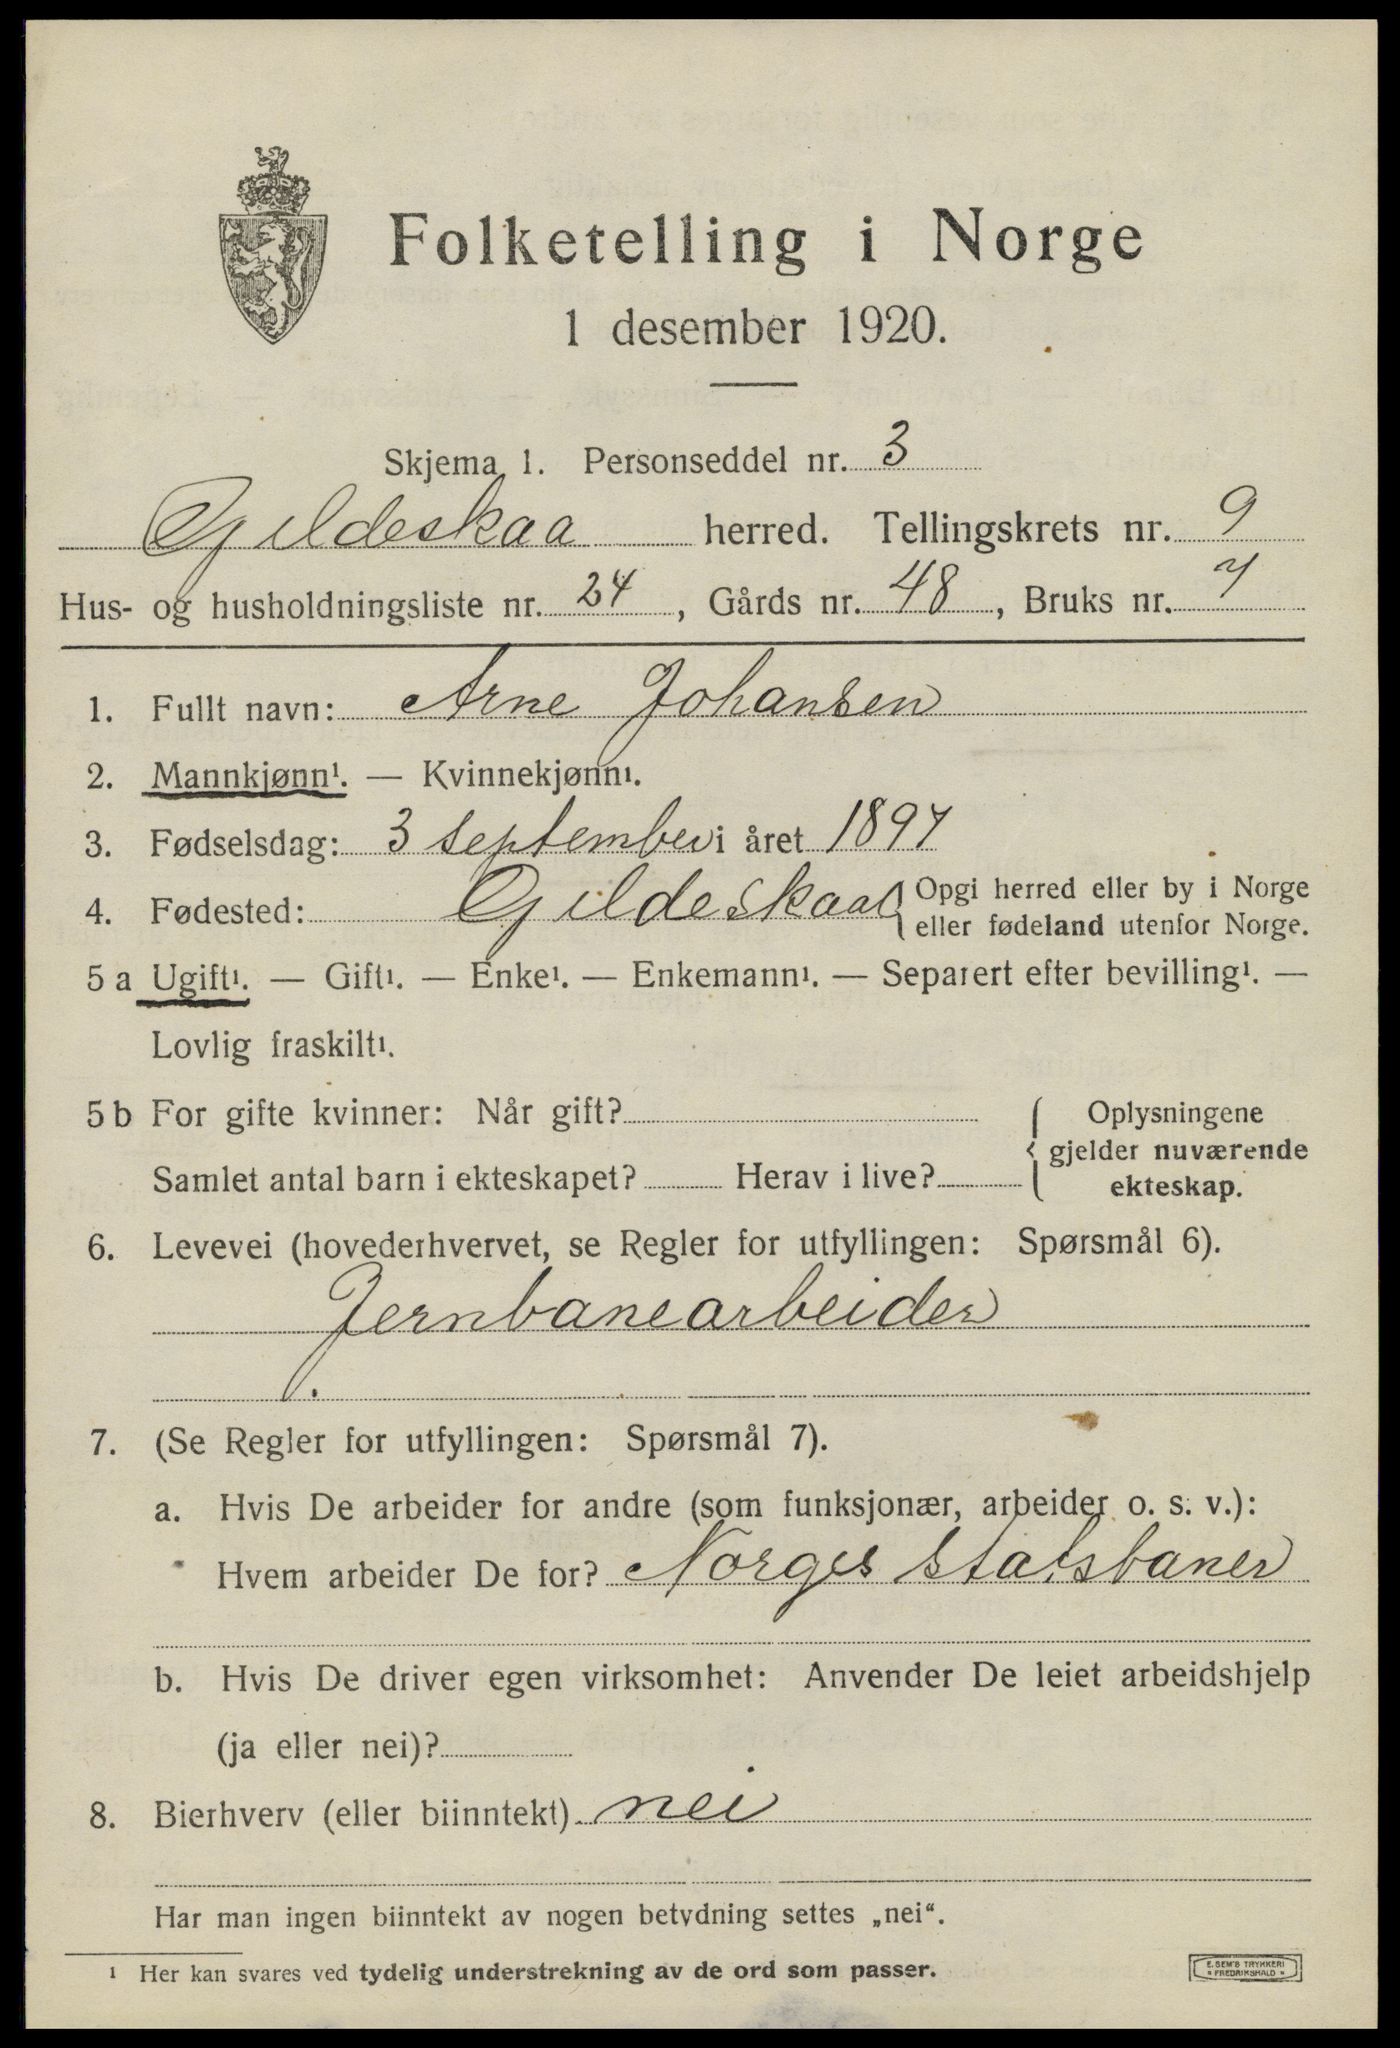 Folketelling i Norge
1 desember 1920.
Skjema 1. Personseddel nr. 3
Gildeskaa herred. Tellingskrets nr. 9
Hus- og husholdningsliste nr. 24, Gårds nr. 48, Bruks nr. 7
1. Fullt navn: Arne Johansen
2. Mannkjønn¹. — Kvinnekjønn¹.
3. Fødselsdag: 3 september i året 1897
4. Fødested: Gildeskaal { Opgi herred eller by i Norge
eller fødeland utenfor Norge.
5 a Ugift¹. — Gift¹. — Enke¹. — Enkemann¹. — Separert efter bevilling¹. —
Lovlig fraskilt¹.
5 b For gifte kvinner: Når gift?
Samlet antal barn i ekteskapet? Herav i live?
{ Oplysningene
gjelder nuværende
ekteskap.
6. Levevei (hovederhvervet, se Regler for utfyllingen: Spørsmål 6).
Jernbanearbeider
7. (Se Regler for utfyllingen: Spørsmål 7).
a. Hvis De arbeider for andre (som funksjonær, arbeider o. s. v.):
Hvem arbeider De for? Norges statsbaner
b. Hvis De driver egen virksomhet: Anvender De leiet arbeidshjelp
(ja eller nei)?
8. Bierhverv (eller biinntekt) nei
Har man ingen biinntekt av nogen betydning settes „nei“.
¹ Her kan svares ved tydelig understrekning av de ord som passer.
E. SEM'S TRYKKERI
* FREDRIKSHALD *